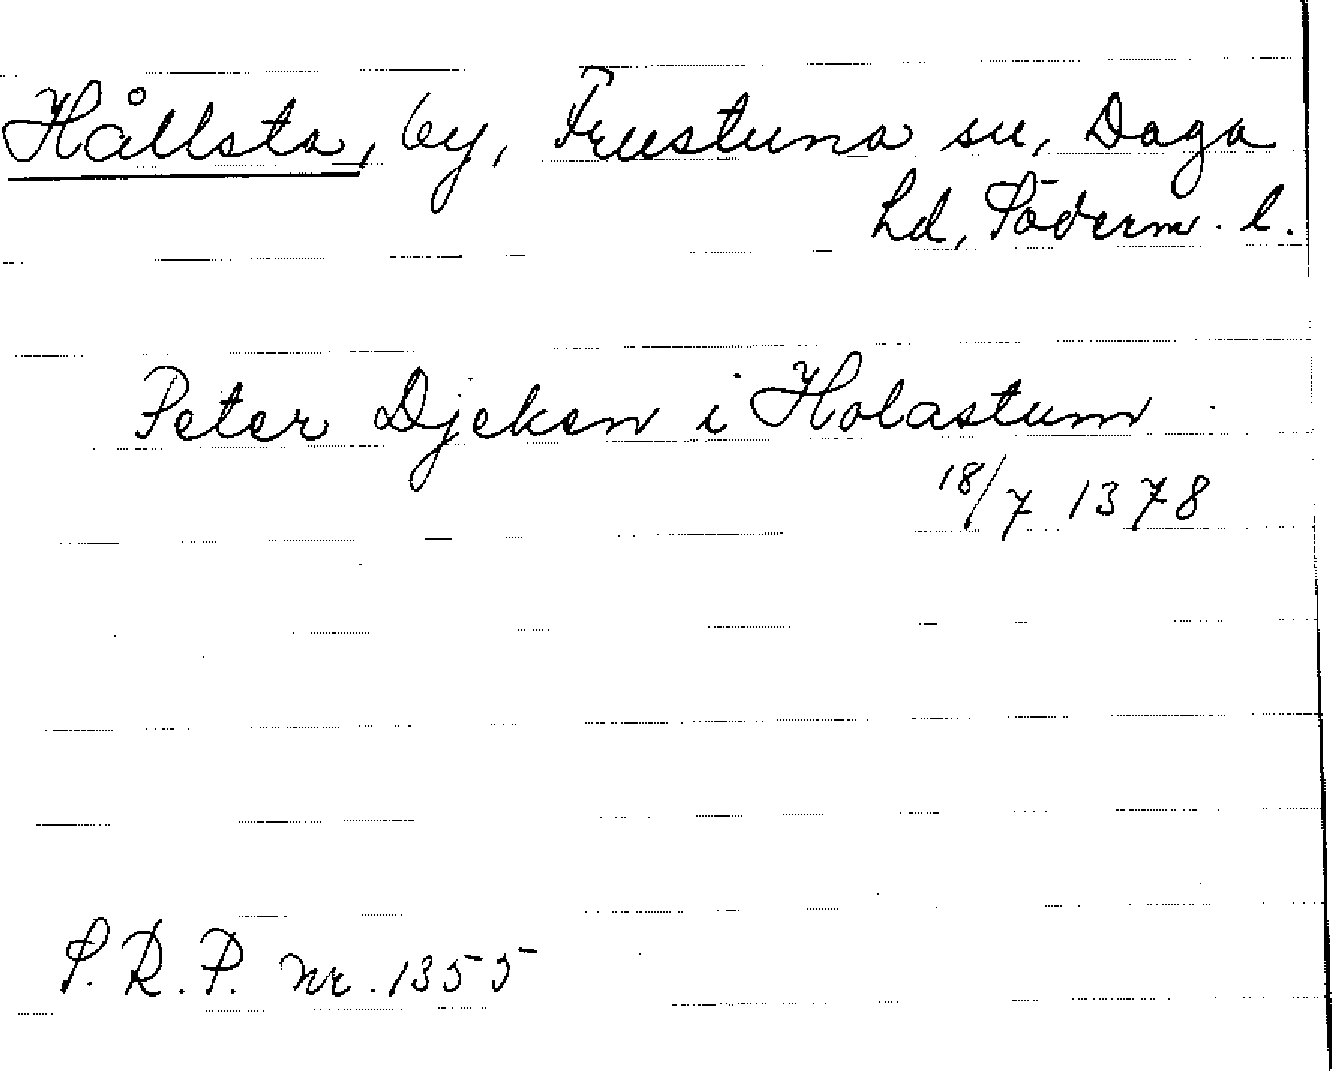 Hållsta, by, Frustuna sn, Daga
hd, Söderm. l.
Peter Djeken i Holastum
18/7 1378
S.R.P. nr. 1355